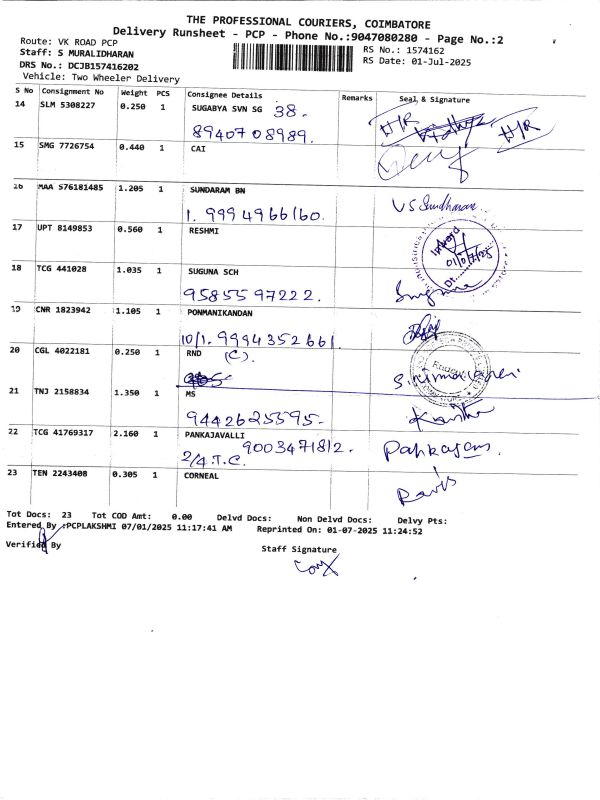 THE PROFESSIONAL COURIERS, COIMBATORE
Delivery Runsheet - PCP - Phone No.:9047080280 - Page No.:2
Route: VK ROAD PCP
Staff: S MURALIDHARAN
RS No.: 1574162
DRS No.: DCJB157416202
RS Date: 01-Jul-2025
Vehicle: Two Wheeler Delivery
S No Consignment No Weight PCS Consignee Details Remarks Seal & Signature
14 SLM 5308227 0.250 1 SUGABYA SVN SG 38. H/R Vidhya H/R
8940708989.
15 SMG 7726754 0.440 1 CAI
16 MAA 576181485 1.205 1 SUNDARAM BN VS Sundharam
1. 9994966160.
17 UPT 8149853 0.560 1 RESHMI Inward
01/07/25
18 TCG 441028 1.035 1 SUGUNA SCH Suguna
9585597222.
19 CNR 1823942 1.105 1 PONMANIKANDAN
10/1. 9994352661.
20 CGL 4022181 0.250 1 RND
(C).
21 TNJ 2158834 1.350 1 MS
9442625595.
22 TCG 41769317 2.160 1 PANKAJAVALLI
2/4.T.C. 9003471812.
23 TEN 2243408 0.305 1 CORNEAL
Tot Docs: 23 Tot COD Amt: 0.00 Delvd Docs: Non Delvd Docs: Delvy Pts:
Entered By :PCPLAKSHMI 07/01/2025 11:17:41 AM Reprinted On: 01-07-2025 11:24:52
Verified By
Staff Signature